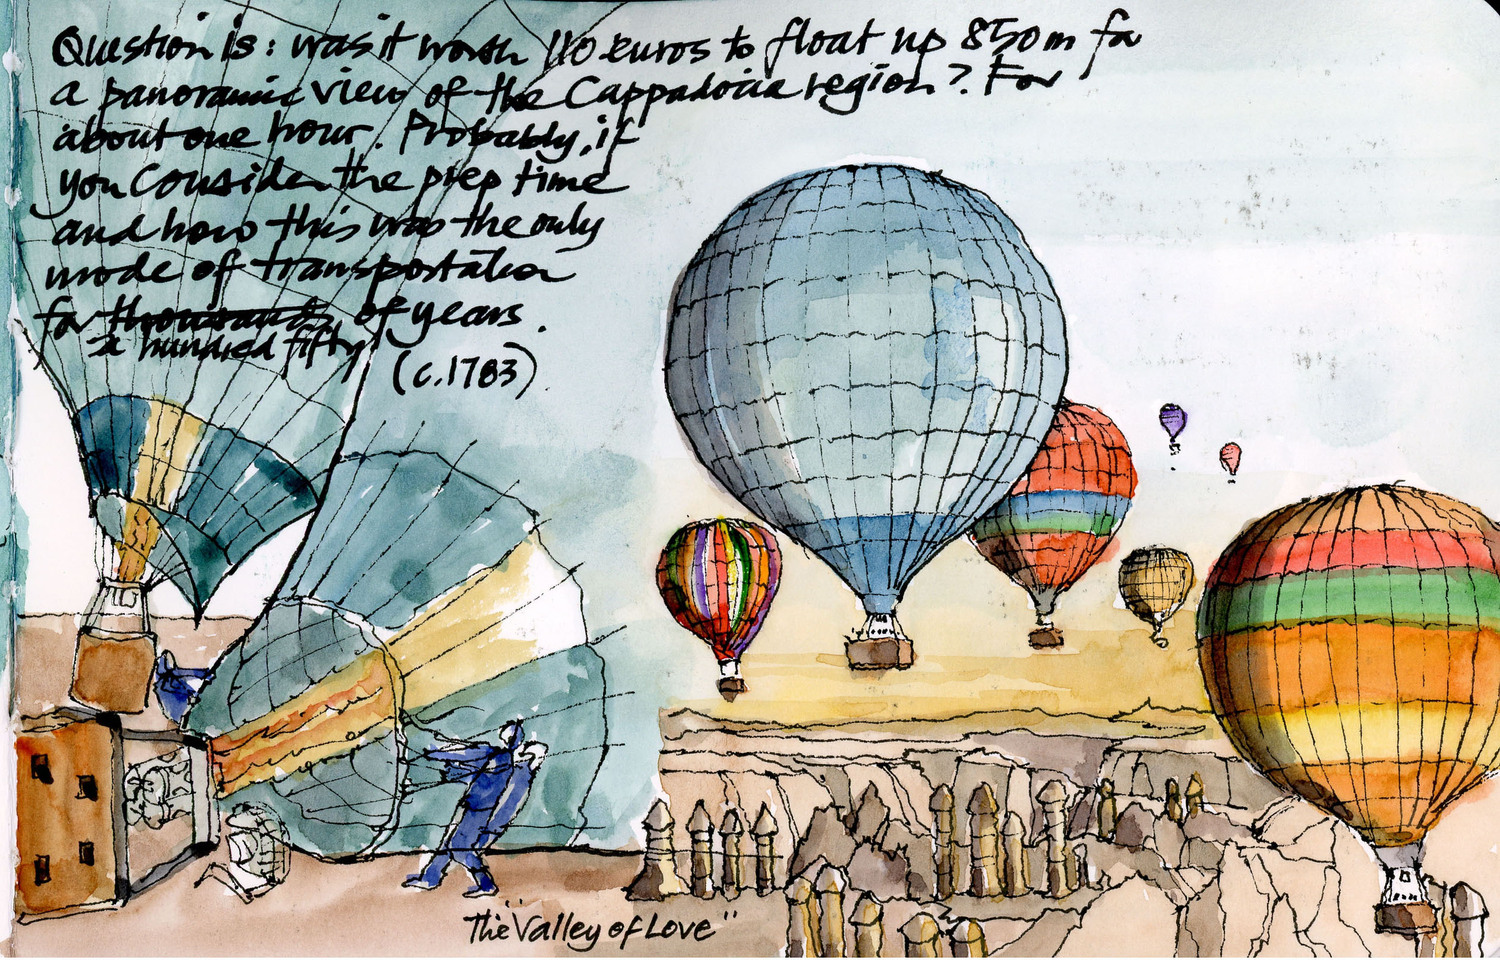 Question is: was it worth 110 euros to float up 850m for
a panoramic view of the Cappadocia region? For
about one hour. Probably, if
you consider the prep time
and how this was the only
mode of transportation
for thousands of years.
a hundred fifty
(c.1783)
The "Valley of Love"